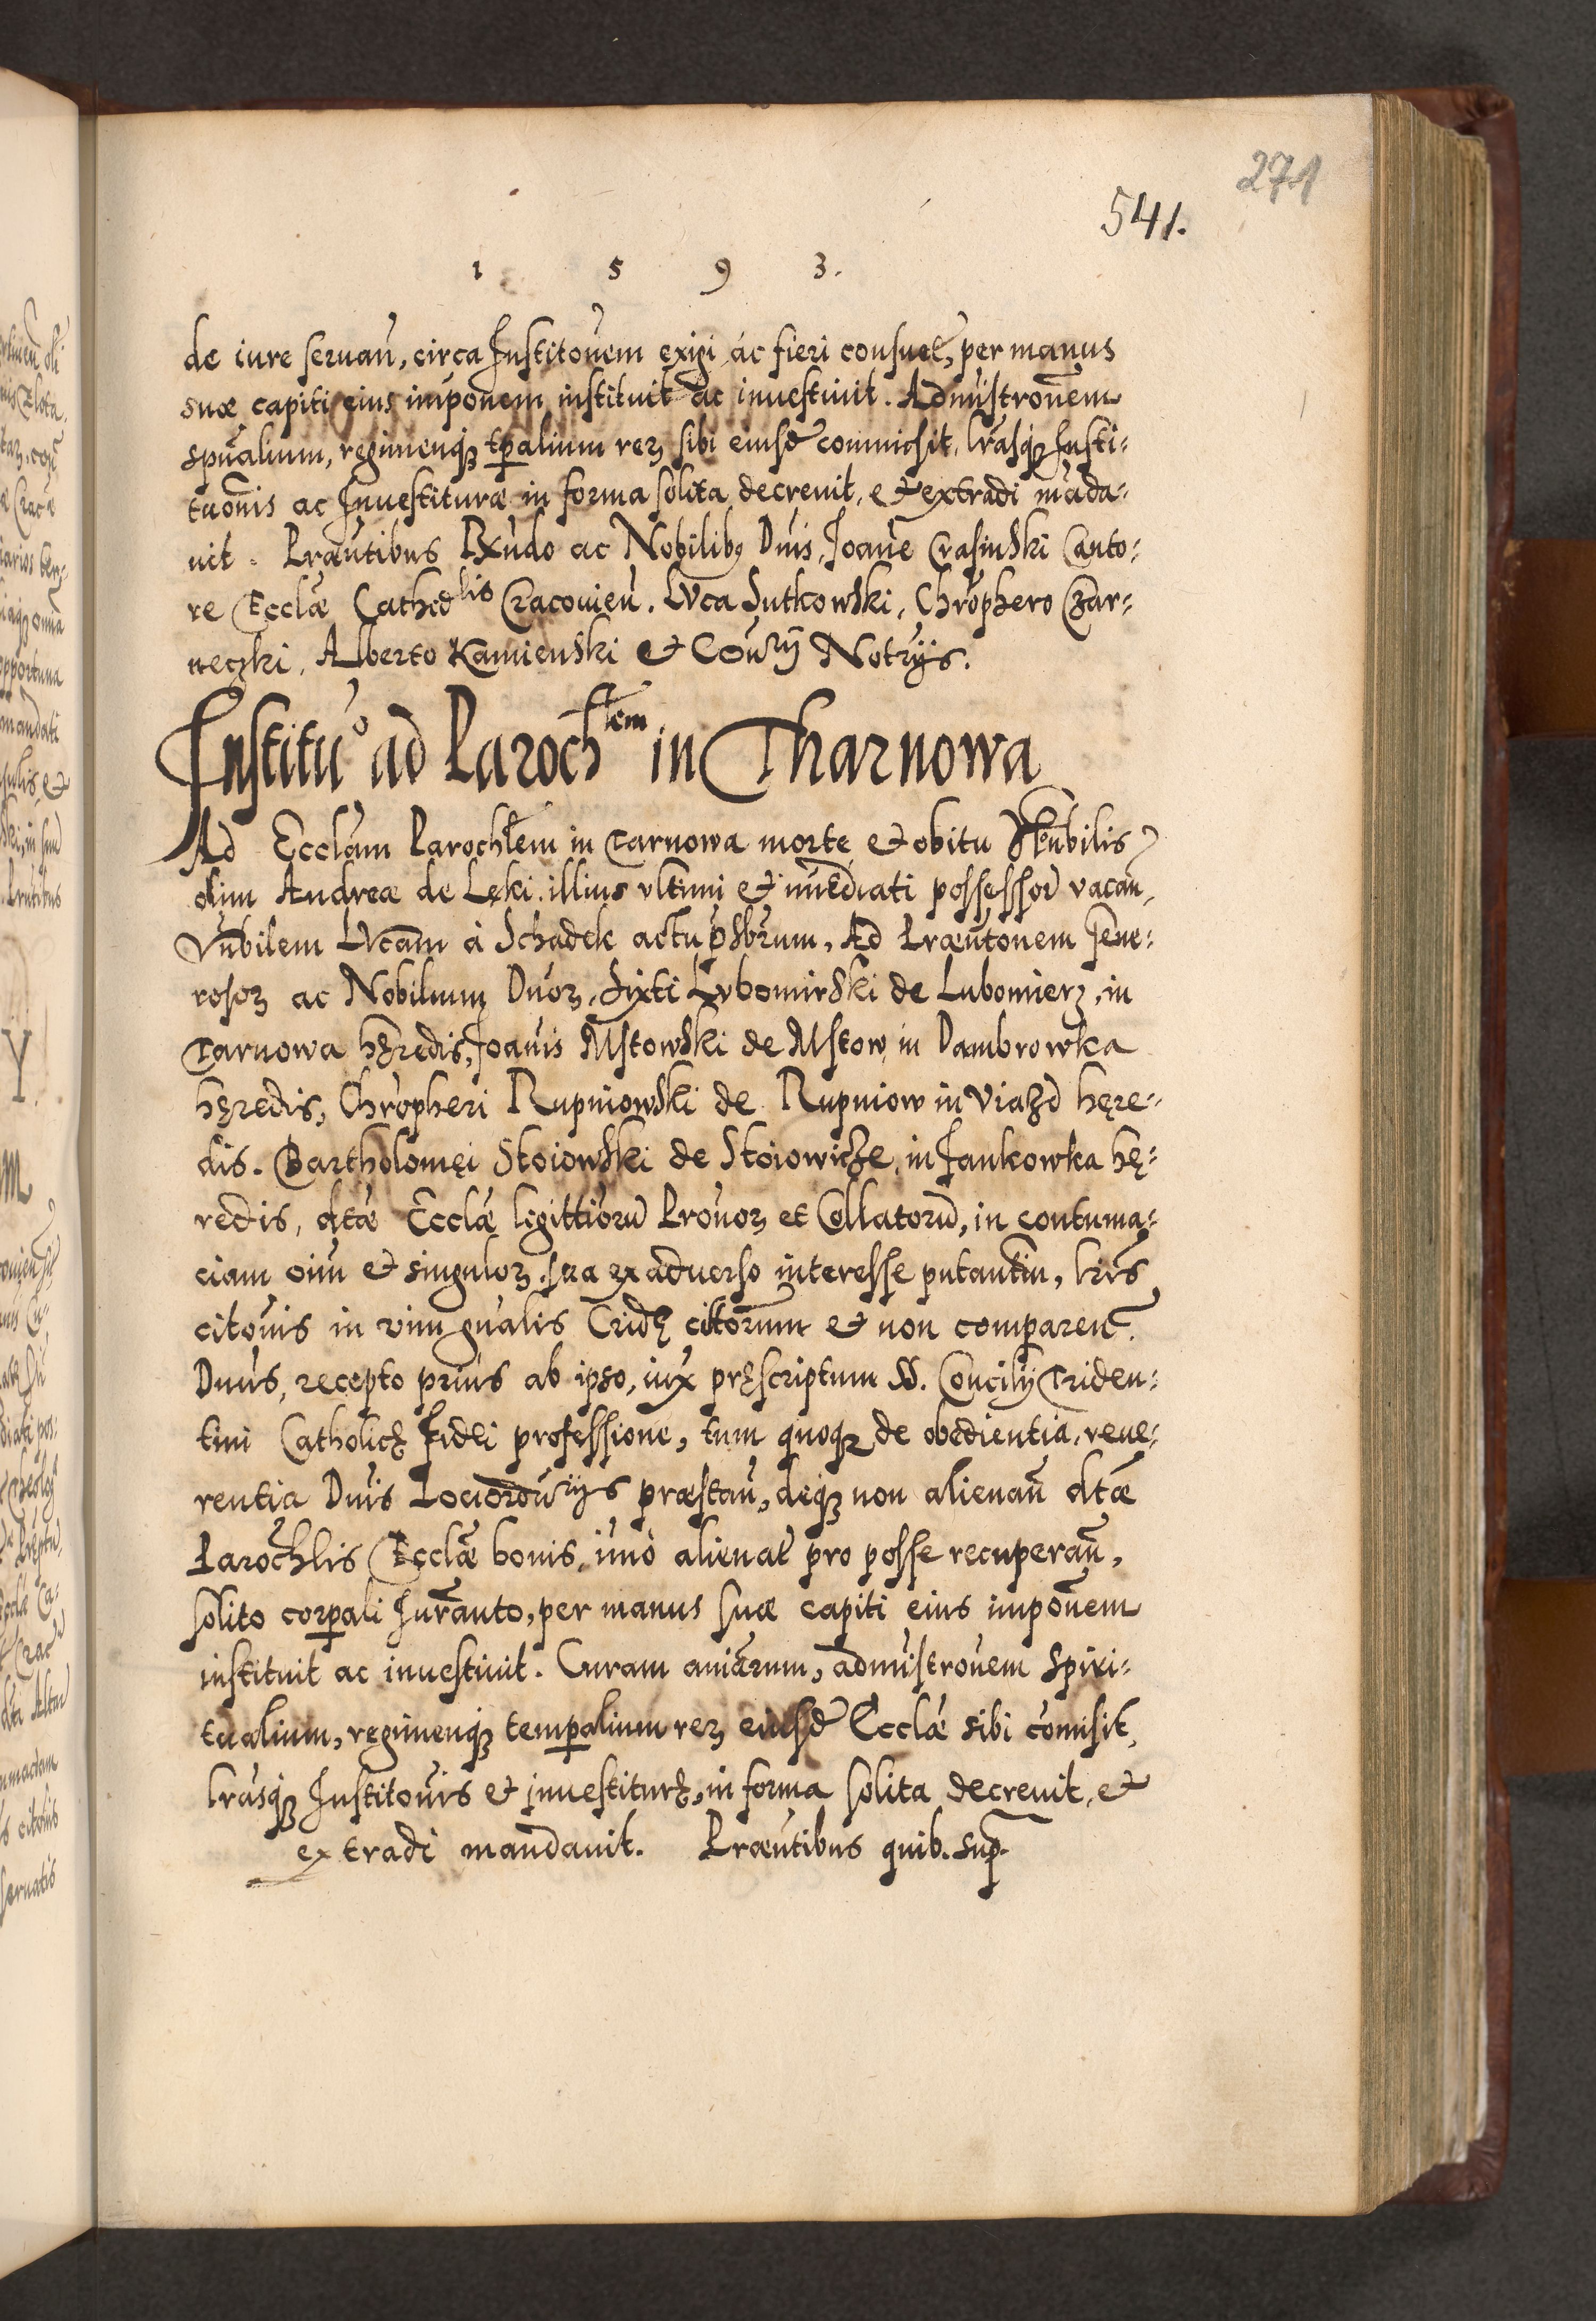 271
541.
1 5 9 3.
de iure seruan̄, circa Instito͞nem exigi ac fieri consuet̄, per manus
suæ capiti eius impo͞nem instituit ac inuestiuit. Admi͞stro͞nem
spu͞alium, regimenq́ꝫ tp͞alium reꝝ sibi eiusd͞ commisit, lr͞asq́ꝫ Insti-
tuo͞nis ac Inuestituræ in forma solita decreuit, et extradi ma͞da-
uit. Præn͞tibus Rx͞ndo ac Nobilibꝫ Dn͞is, Joan͞e Crasinski Canto-
re Eccl͞æ Cathed͞lis Cracouien̄. Luca Sutkowski, Chr͞ophero Czar-
neczki, Alberto Kamienski et Con͞rij Not͞rijs.
Institu͞o ad Paroch͞lem in Tharnowa
Ad Eccl͞am Paroch͞lem in Tarnowa morte et obitu Hon͞bilis
olim Andreæ de Lęki. illius vltimi et im̄ediati possessor̄ vacan̄,
Vn͞bilem Luca͞m à Schadek actu p͞sbr͞um, Ad Præn͞to͞nem Gene-
rosoꝝ ac Nobilium Dn͞oꝝ, Sixti Lubomirski de Lubomierz, in
Tarnowa hęredis, Joan͞is Mstowski de Mstow in Dambrowka
hęredis, Chr͞opheri Rupniowski de Rupniow in Viazd hęre-
dis. Bartholomęi Stoiowski de Stoiowicze, in Jankowka hę-
redis, dt͞æ Eccl͞æ legitti͞oru͞ Pro͞noꝝ et Collatoru͞, in contuma-
ciam oi͞m et singuloꝝ, sua ex aduerso interesse putantiu͞, lr͞is
cito͞nis in vim gn͞alis Cridę cit͞orum et non comparen̄.
Dn͞us, recepto prius ab ipso, iux̄ pręscriptum SS. Concilij Triden-
tini Catholicę Fidei professione, tum quoqꝫ de obedientia, reue-
rentia Dn͞is Lociordi͞n͞rijs præstan̄, deq́ꝫ non alienan̄ dt͞æ
Paroch͞lis Eccl͞æ bonis, imò alienat̄ pro posse recuperan̄,
solito corp͞ali Jura͞nto, per manus suæ capiti eius impo͞nem
instituit ac inuestiuit. Curam ani͞arum, admi͞stro͞nem spiri-
tualium, regimenq́ꝫ temp͞alium reꝝ eiusd͞ Eccl͞æ sibi co͞misit,
lr͞asq́ꝫ Instito͞nis et inuestiturę, in forma solita decreuit, et
extradi mandauit. Præn͞tibus quib. sup͞.